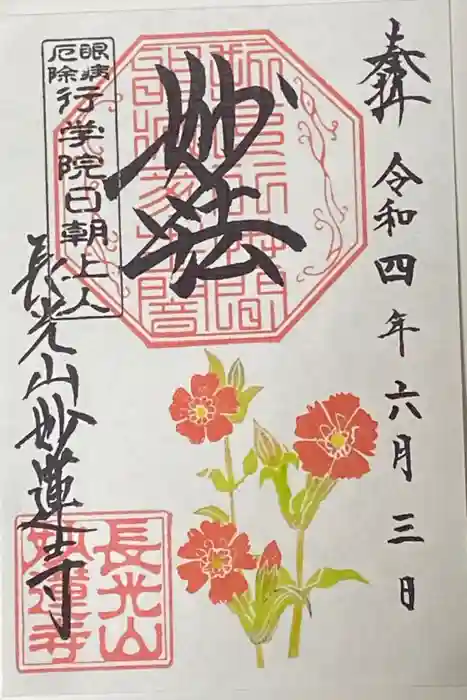 奉拝 令和四年六月三日
妙法
眼病
厄除
行学院日朝上人
長光山妙蓮寺
長光山
妙蓮寺